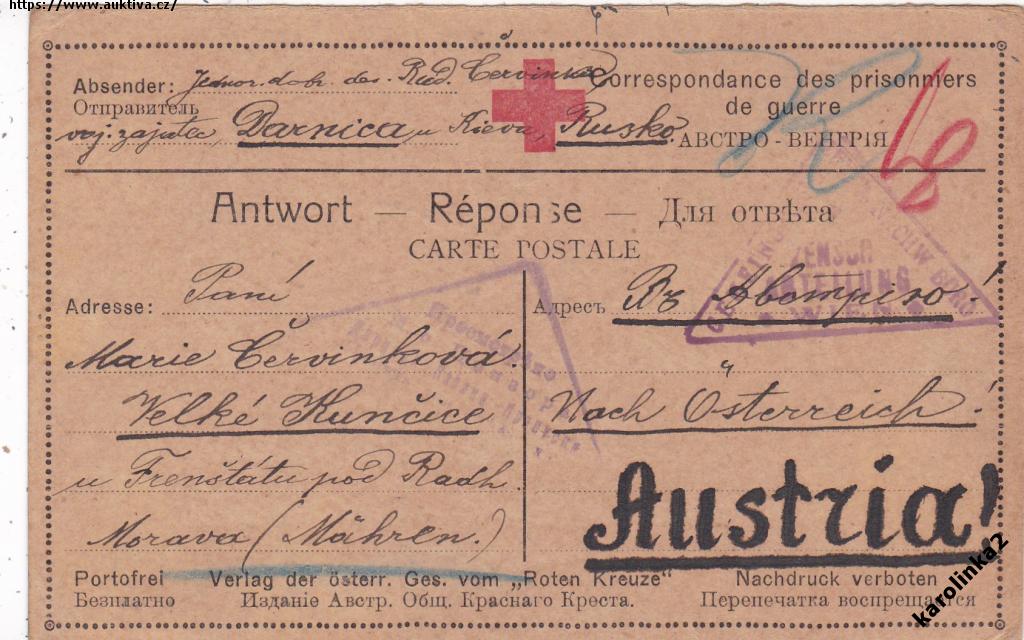 https://www.auktiva.cz/
Absender: Jednor. dobr. des. Rud. Červinka
Отправитель
voj. zajatec, Darnica u Kieva, Rusko.
Correspondance des prisonniers
de guerre
АВСТРО-ВЕНГРІЯ
Antwort — Réponse — Для отвѣта
CARTE POSTALE
Adresse: Paní
Marie Červinková
Velké Kunčice
u Frenštátu pod Radh.
Morava (Mähren.)
Адресъ Въ
Nach Österreich!
Austria!
ZENSUR
ABTEILUNG
WIEN
Просмотрѣно
Portofrei Verlag der österr. Ges. vom „Roten Kreuze" Nachdruck verboten
Безплатно Изданіе Австр. Общ. Краснаго Креста. Перепечатка воспрещается
karolinka2